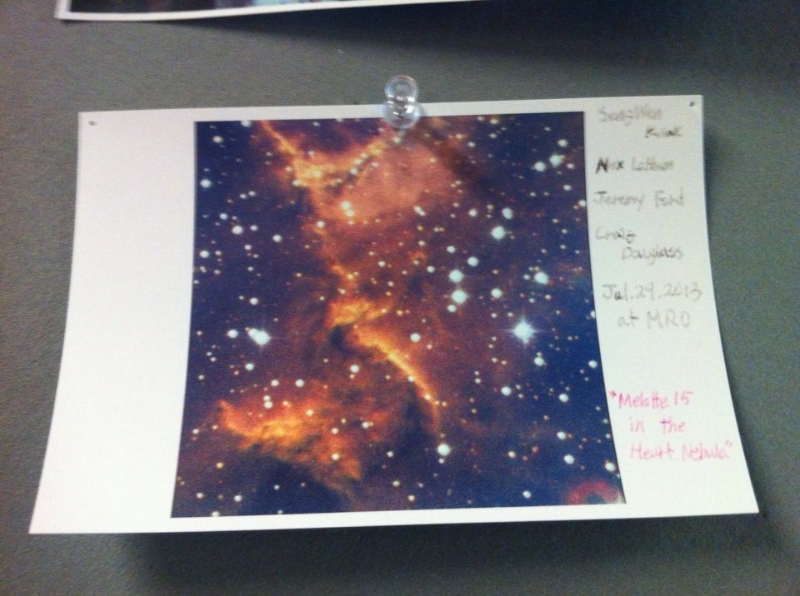 SungWon
Kwak
Nick Latham
Jeremy Ford
Craig
Douglass
Jul.29.2013
at MRO
"Melotte 15
in the
Heart Nebula"